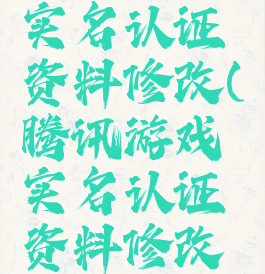 实名认证
资料修改(
腾讯游戏
实名认证
资料修改